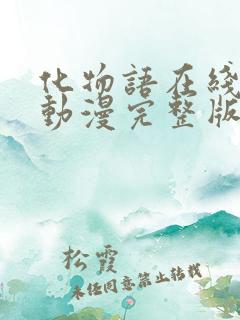 化物語在綫
動漫完整版
松霞
未经同意禁止转载